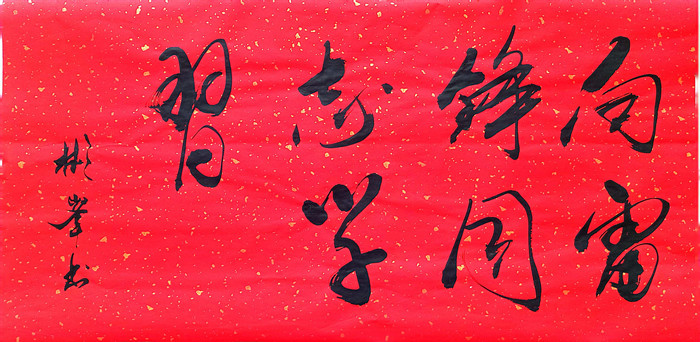 向雷
鋒同
志学
習
彬峯书